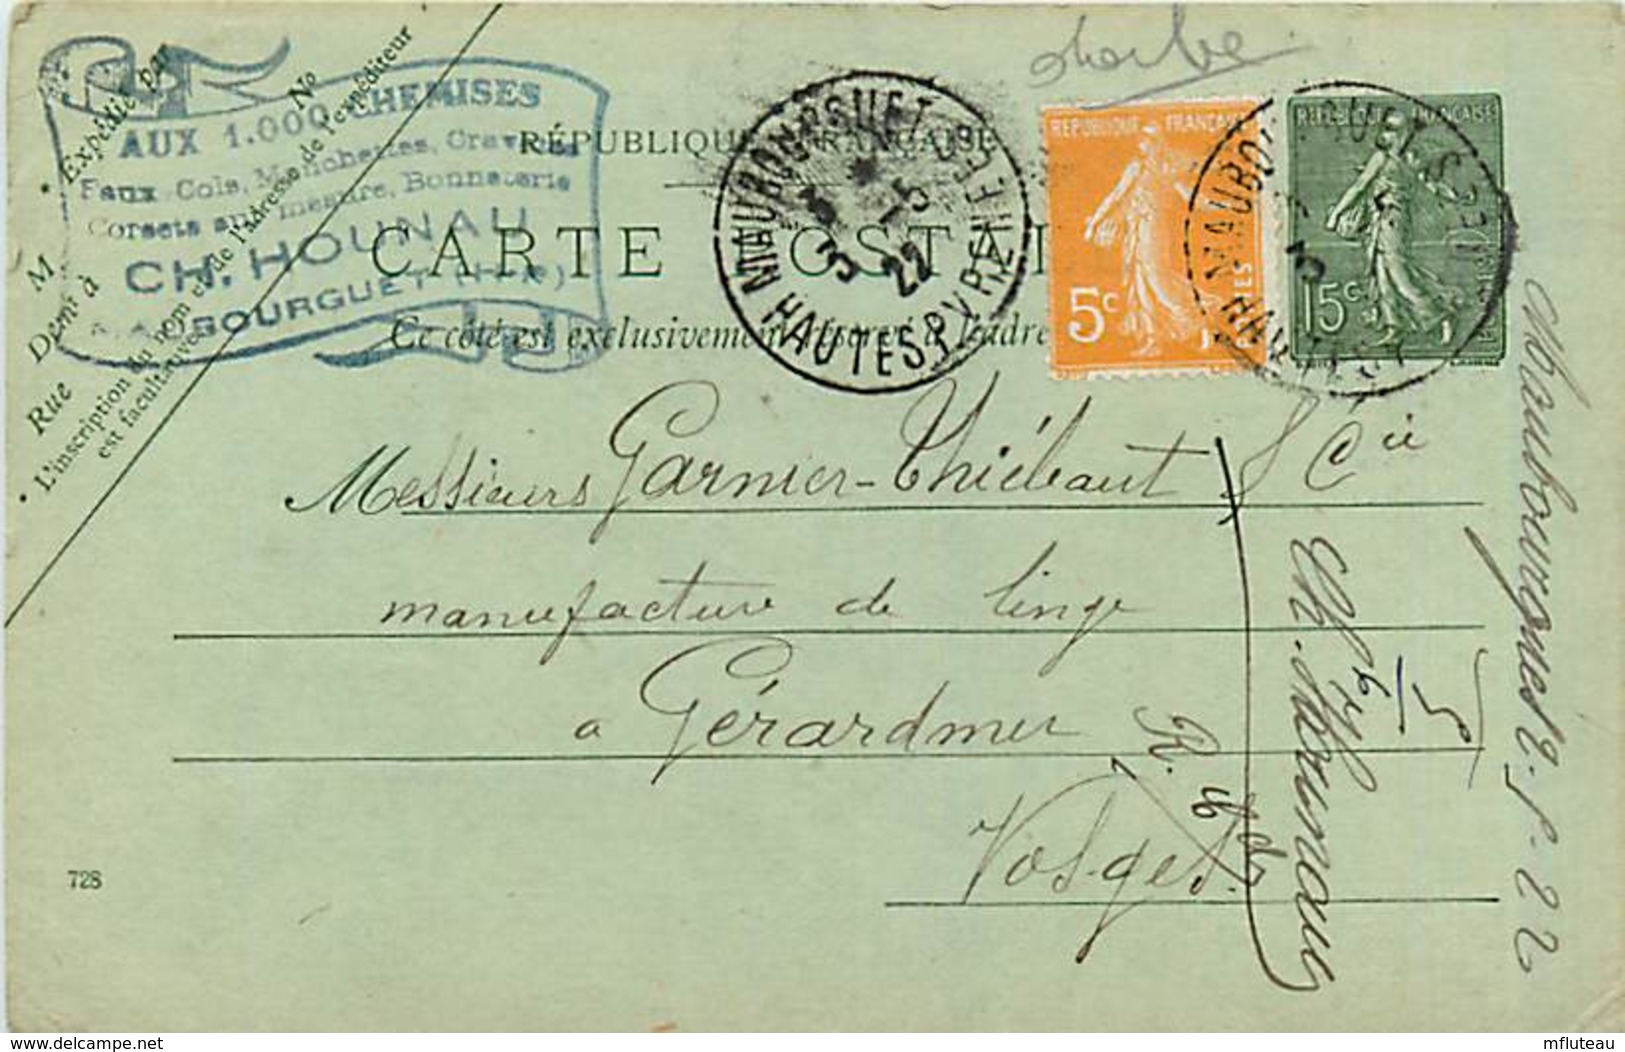 AUX 1.000 CHEMISES
Faux-Cols, Manchettes, Cravates
Corsets sur mesure, Bonneterie
CH. HOUNAU
MAUBOURGUET (H-P)
Expédié par
M
Demt à
Rue
No
L'inscription du nom et de l'adresse de l'expéditeur
est facultative
RÉPUBLIQUE FRANÇAISE
CARTE POSTALE
Ce côté est exclusivement réservé à l'adresse
MAUBOURGUET
3 -5
5 22
HAUTES PYRENEES
REPUBLIQUE FRANÇAISE
5c
POSTES
REPUBLIQUE FRANÇAISE
15c
MAUBOURGUET
HAUTES
Messieurs Garnier-Thiébaut & Cie
manufacture de linge
a Gérardmer
Vosges.
Ch. Hounau
Maubourguet 2-5-22
R.
728
delcampe.net
mfluteau